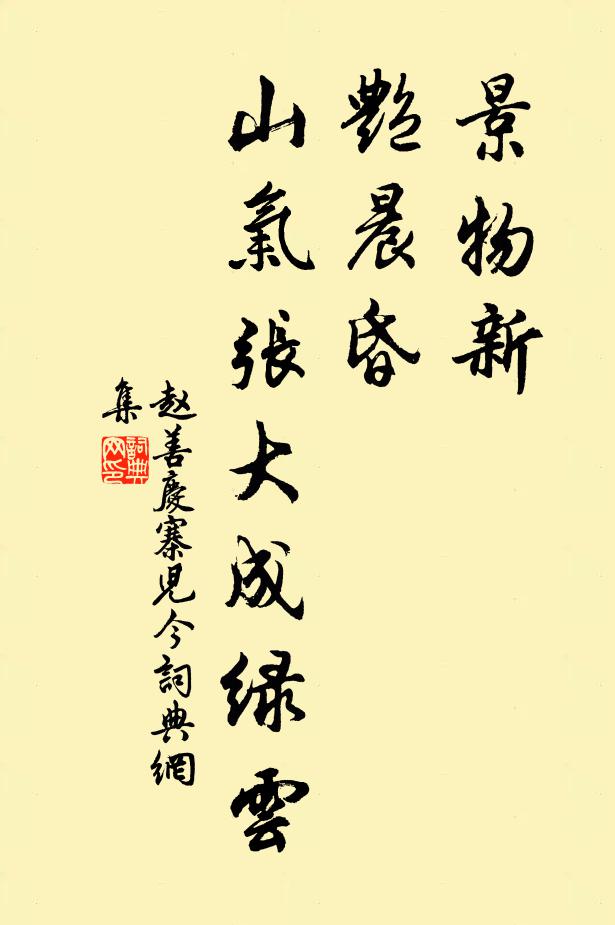 景物新
艷晨昏
山氣張大成緑雲
赵善慶寨児今詞典網
集
詞典
网印